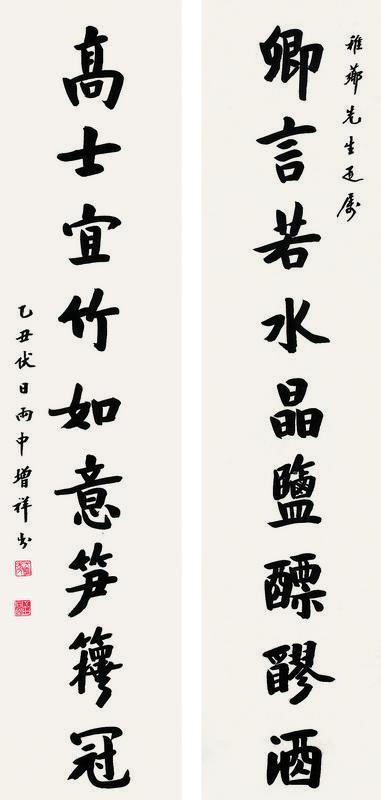 稚薌先生正属
卿言若水晶鹽醥醪酒
髙士宜竹如意笋籜冠
乙丑伏日雨中增祥書